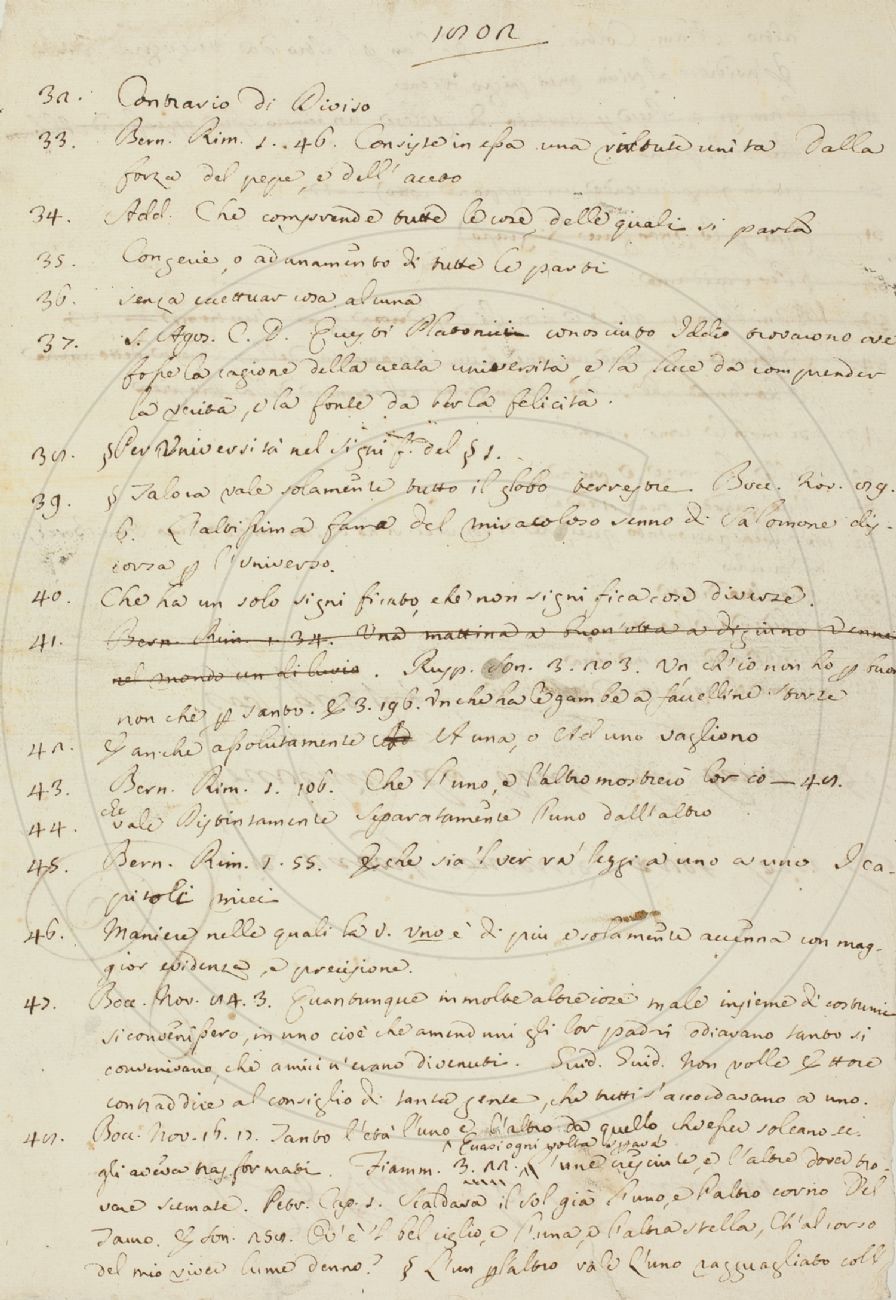 32. Contrario di Diviso
33. Bern. Rim. 1. 46. Consiste in essa una virtute unita dalla
forza del pepe, e dell' aceto
34. Add. Che comprende tutte le cose, delle quali si parla
35. Congerie, o adunamento di tutte le parti
36. senza eccettuar cosa alcuna
37. S. Agos. C. D. Questi Platonici conosciuto Iddio trovarono ove
fosse la cagione della creata università, e la luce da comprender
la verità, e la fonte da ber la felicità.
38. § Per Università nel signif. del § 1.
39. § Talora vale solamente tutto il globo terrestre. Bocc. Nov. 89.
6. L'altissima fama del miracoloso senno di Salomone dis-
corsa p l'universo.
40. Che ha un solo significato, che non significa cose diverse.
41. Bern. Rim. 1. 34. Una mattina a buon'otta a digiuno Venne
nel mondo un diluvio. Rusp. Son. 3. 203. Un ch'io non ho p buon
non chè p santo. E 3. 196. Un che ha le gambe a faccelline storte
42. E anche assolutamente A una, o Ad uno vagliono
43. Bern. Rim. 1. 106. Che l'uno, e l'altro mostrerò lor ciò — 48.
44. che vale Distintamente Separatamente l'uno dall'altro
45. Bern. Rim. 1. 55. E che sia 'l ver va' leggi a uno a uno I ca-
pitoli miei
46. Maniere nelle quali la v. uno è di più e solamente accenna con mag-
gior evidenza, e precisione.
47. Bocc. Nov. 84. 3. Quantunque in molte altre cose male insieme di costumi
si convenissero, in uno cioè che amenduni gli lor padri odiavano tanto si
convenivano, che amici n'erano divenuti. Guid. Guid. Non volle Ettore
contraddire al consiglio di tanta gente, che tutti s'accordavano a uno.
48. Bocc. Nov. 16. 17. Tanto l'età l'uno e l'altro da quello, che esser soleano
gli aveva trasformati. Fiamm. 3. 12. Quasi ogni volta l'une cresciute, e l'altre dovea tro-
vare scemate. Petr. Cap. 1. Scaldava il sol già l'uno, e l'altro corno Del
Tauro. E Son. 258. Ov'è 'l bel ciglio, e l'una, e l'altra stella, Ch'al corso
del mio viver lume denno? § L'un p l'altro vale L'uno ragguagliato coll'